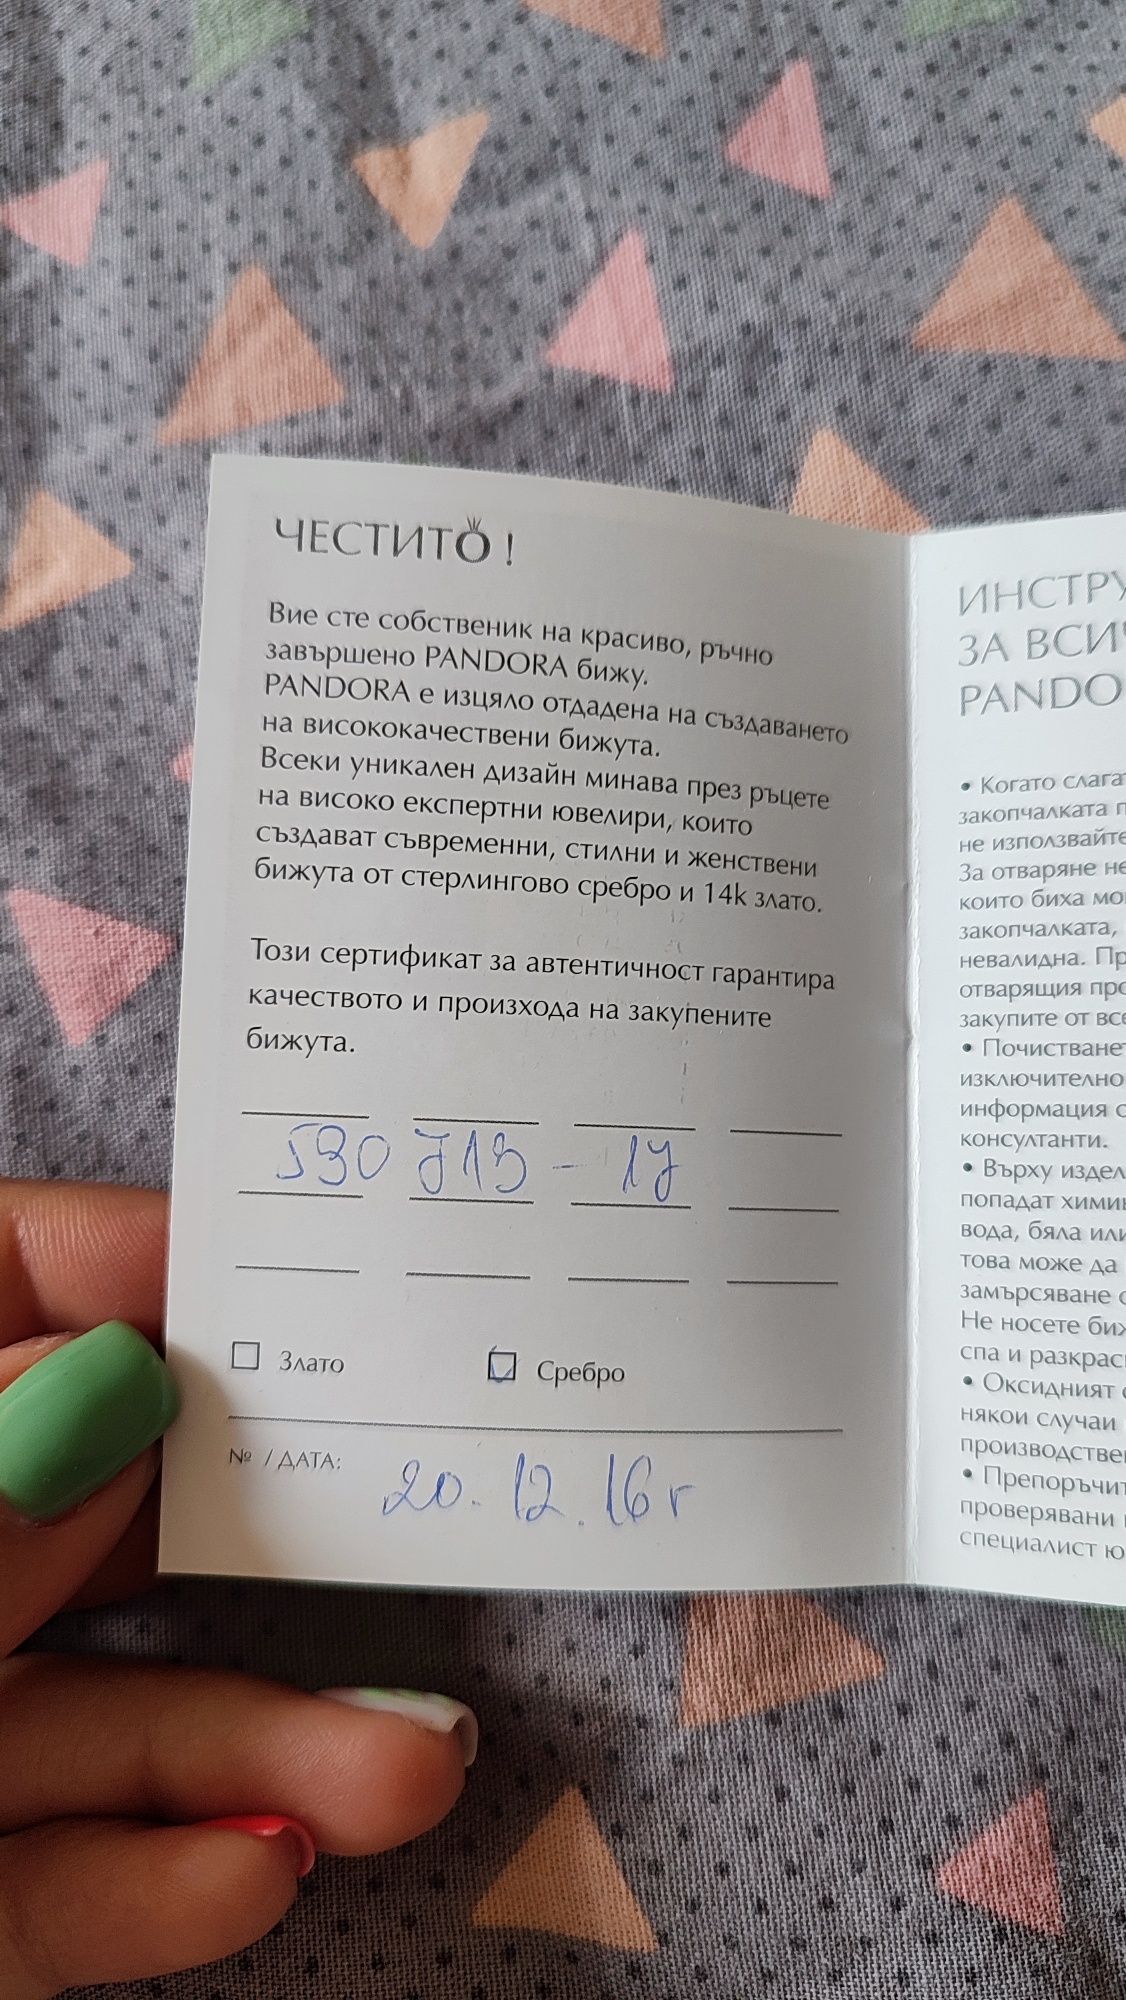 ЧЕСТИТО !
Вие сте собственик на красиво, ръчно
завършено PANDORA бижу.
PANDORA е изцяло отдадена на създаването
на висококачествени бижута.
Всеки уникален дизайн минава през ръцете
на високо експертни ювелири, които
създават съвременни, стилни и женствени
бижута от стерлингово сребро и 14k злато.
Този сертификат за автентичност гарантира
качеството и произхода на закупените
бижута.
590 719 - 17
Злато
Сребро
№ / ДАТА: 20.12.16 г
ИНСТРУ
ЗА ВСИЧ
PANDO
• Когато слага
закопчалката п
не използвайте
За отваряне не
които биха мо
закопчалката,
невалидна. Пр
отварящия про
закупите от все
• Почистване
изключително
информация с
консултанти.
• Върху издел
попадат хими
вода, бяла или
това може да
замърсяване с
Не носете биж
спа и разкрас
• Оксидният с
някои случаи
производстве
• Препоръчит
проверявани
специалист ю